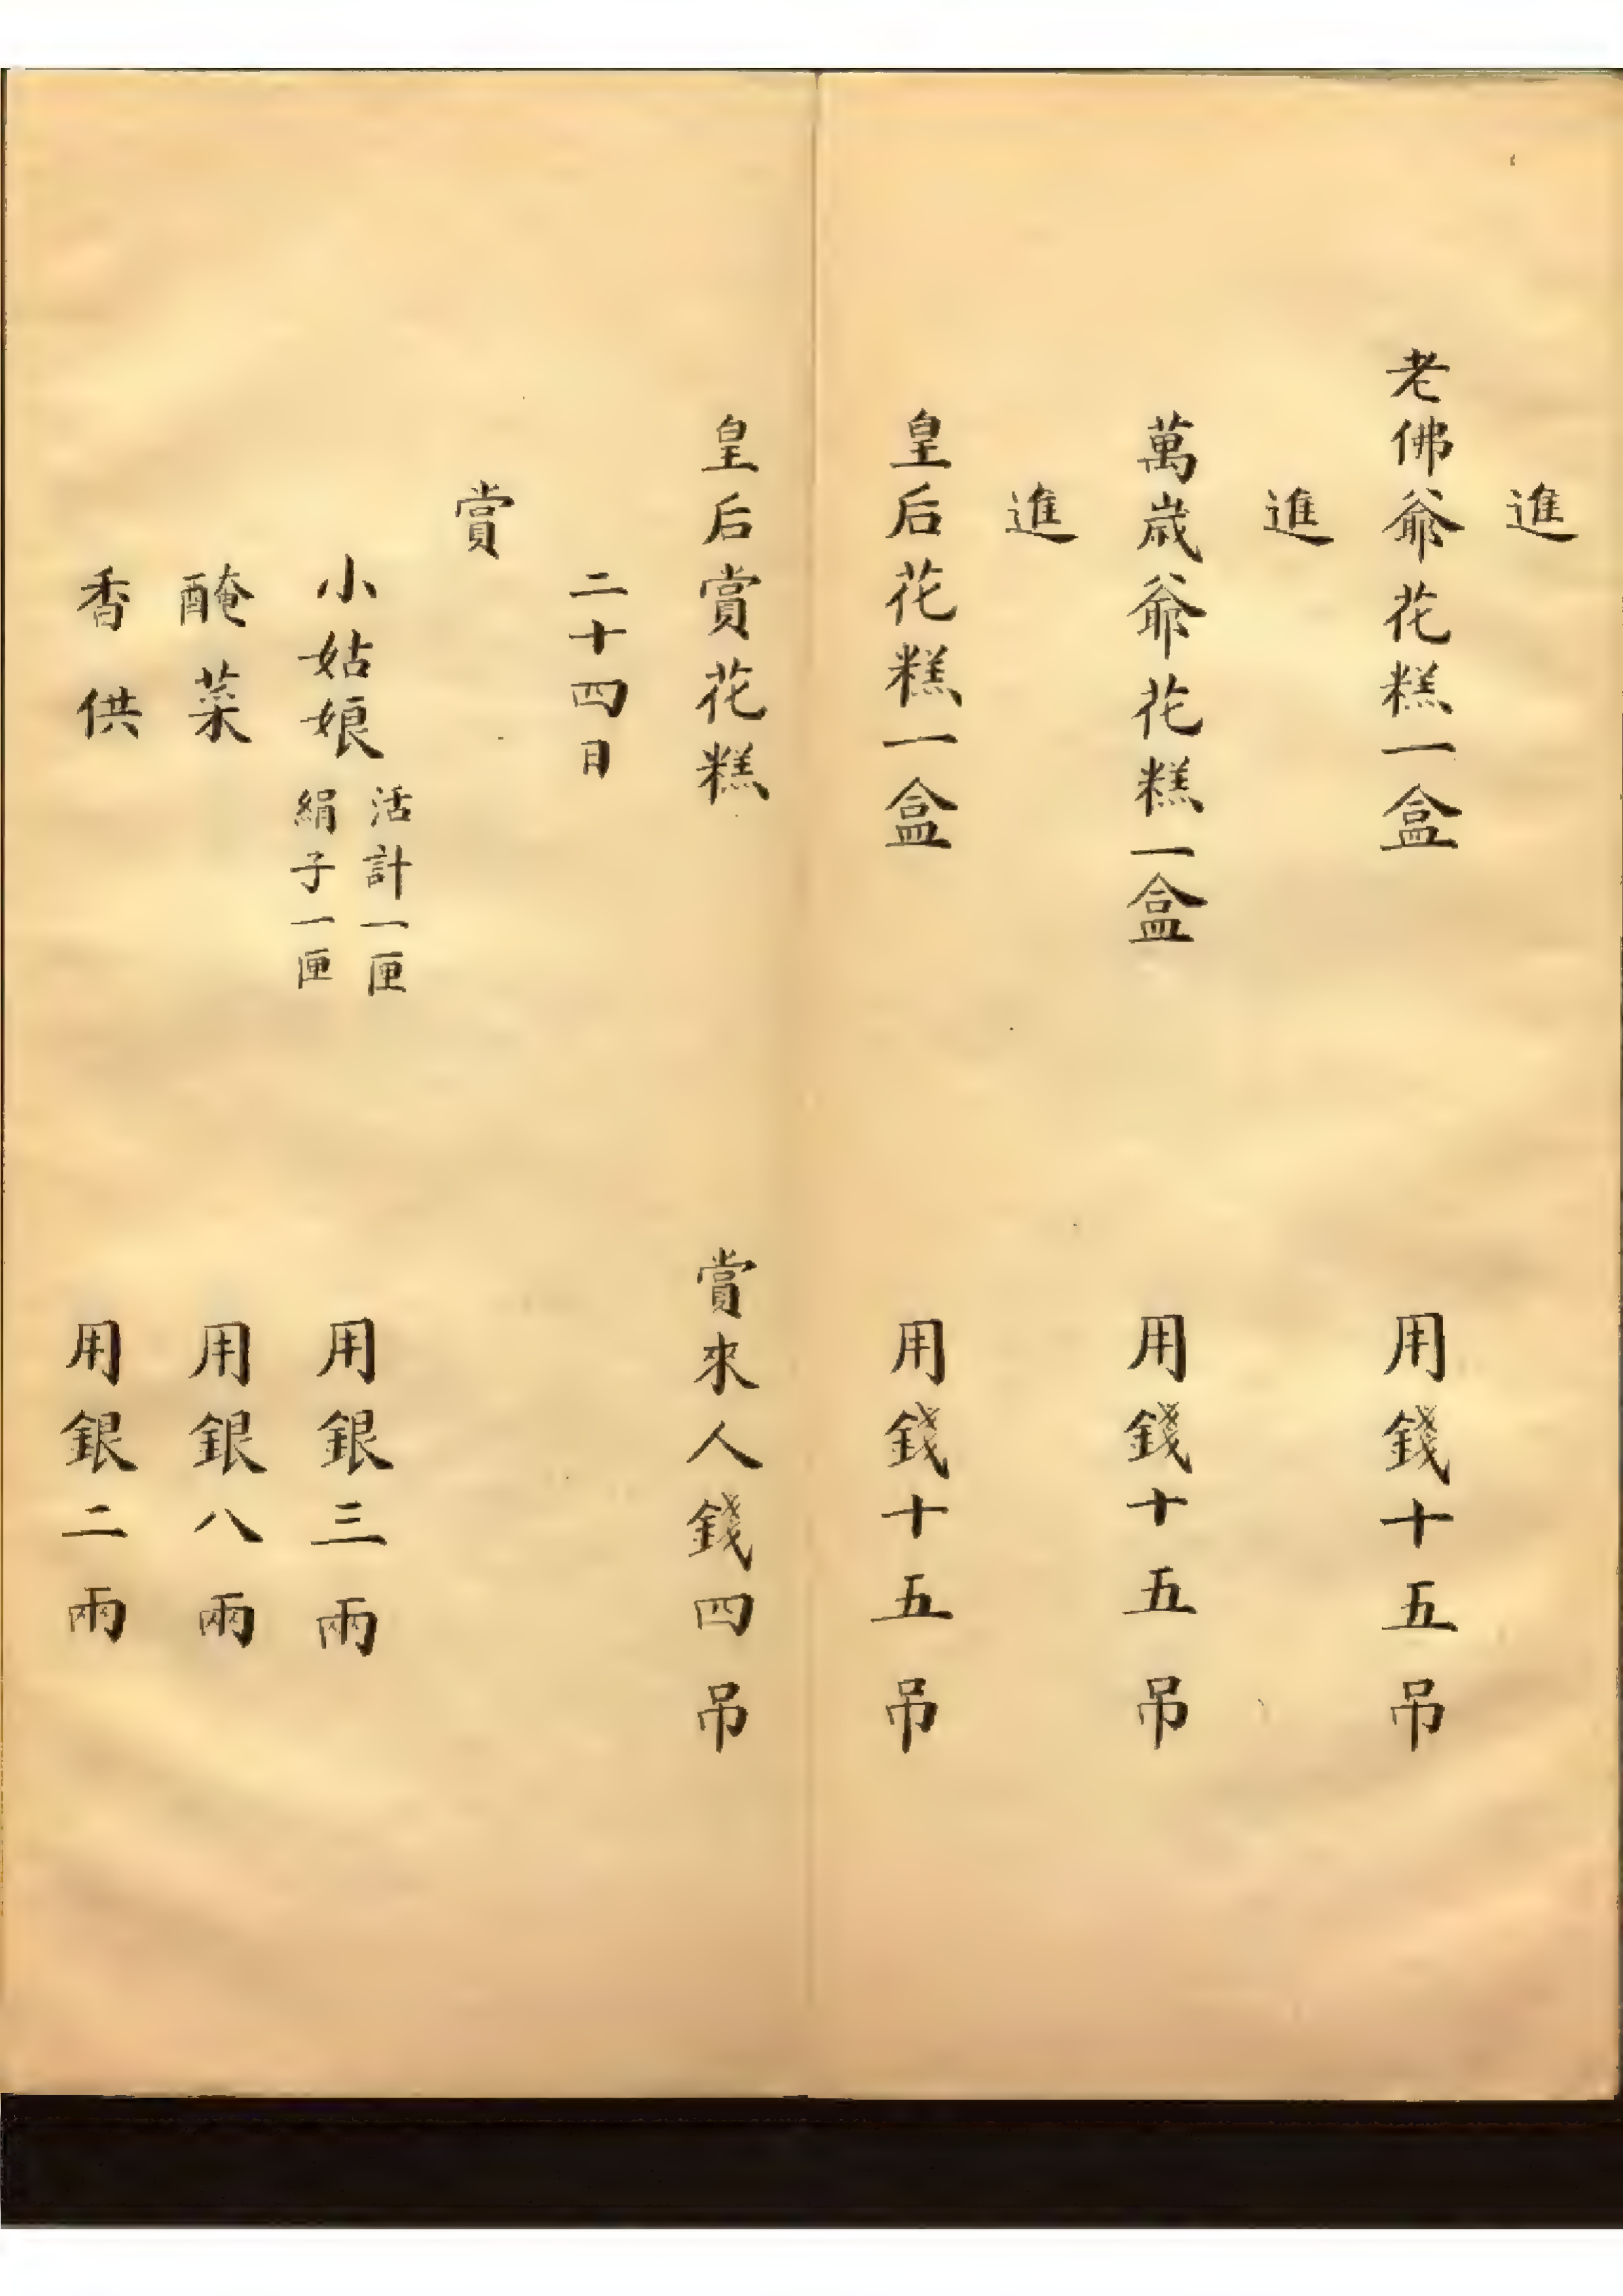 進
老佛爺花糕一盒 用錢十五吊
進
萬歲爺花糕一盒 用錢十五吊
進
皇后花糕一盒 用錢十五吊
皇后賞花糕 賞來人錢四吊
二十四日
賞
小姑娘 活計一匣 絹子一匣 用銀三兩
醃菜 用銀八兩
香供 用銀二兩